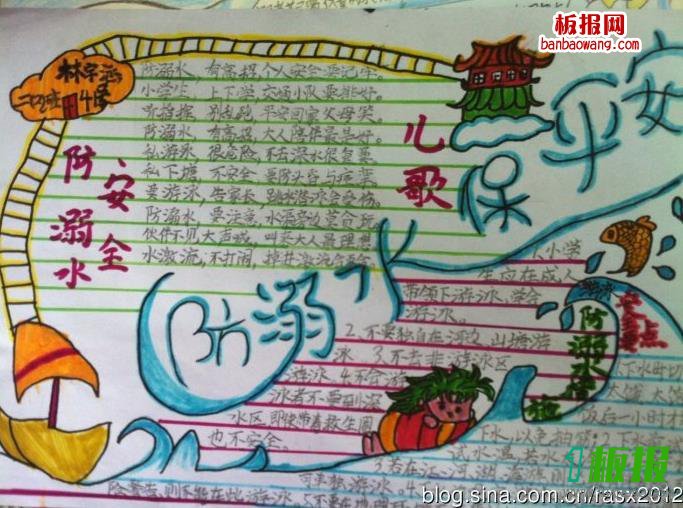 板报网
banbaowang.com
林宇
二(2)班
4号
防溺水
安全
儿歌
防溺水,有高招,个人安全要记牢。
小学生,上下学,交通小队要排好。
听指挥,别乱跑,平安回家父母笑。
防溺水,有高招,大人陪伴最是好。
私游泳,很危险,不去深水很重要
私下塘,不安全
要游泳,告家长,跳水游泳会受伤。
防溺水,要注意,水源旁边莫合玩
伙伴不见大声喊,叫来大人最理想
水激流,不打闹,掉井激流
防溺水保平安
1.小学
生应在成人
带领下游泳,学会
游泳。
2.不要独自在河边、山塘游
泳 3.不去非游泳区
游泳 4.不会游
泳者不要到深
水区,即使带着救生圈
也不安全。
防溺水措施
安全要点
下水时切
太饿、太饱
饭后一小时才
下水,以免抽筋;2.
试水温,若水
若在江、河、湖、海
可
则不能在此游泳。5.不要在
1板报
blog.sina.com.cn/rasx2012